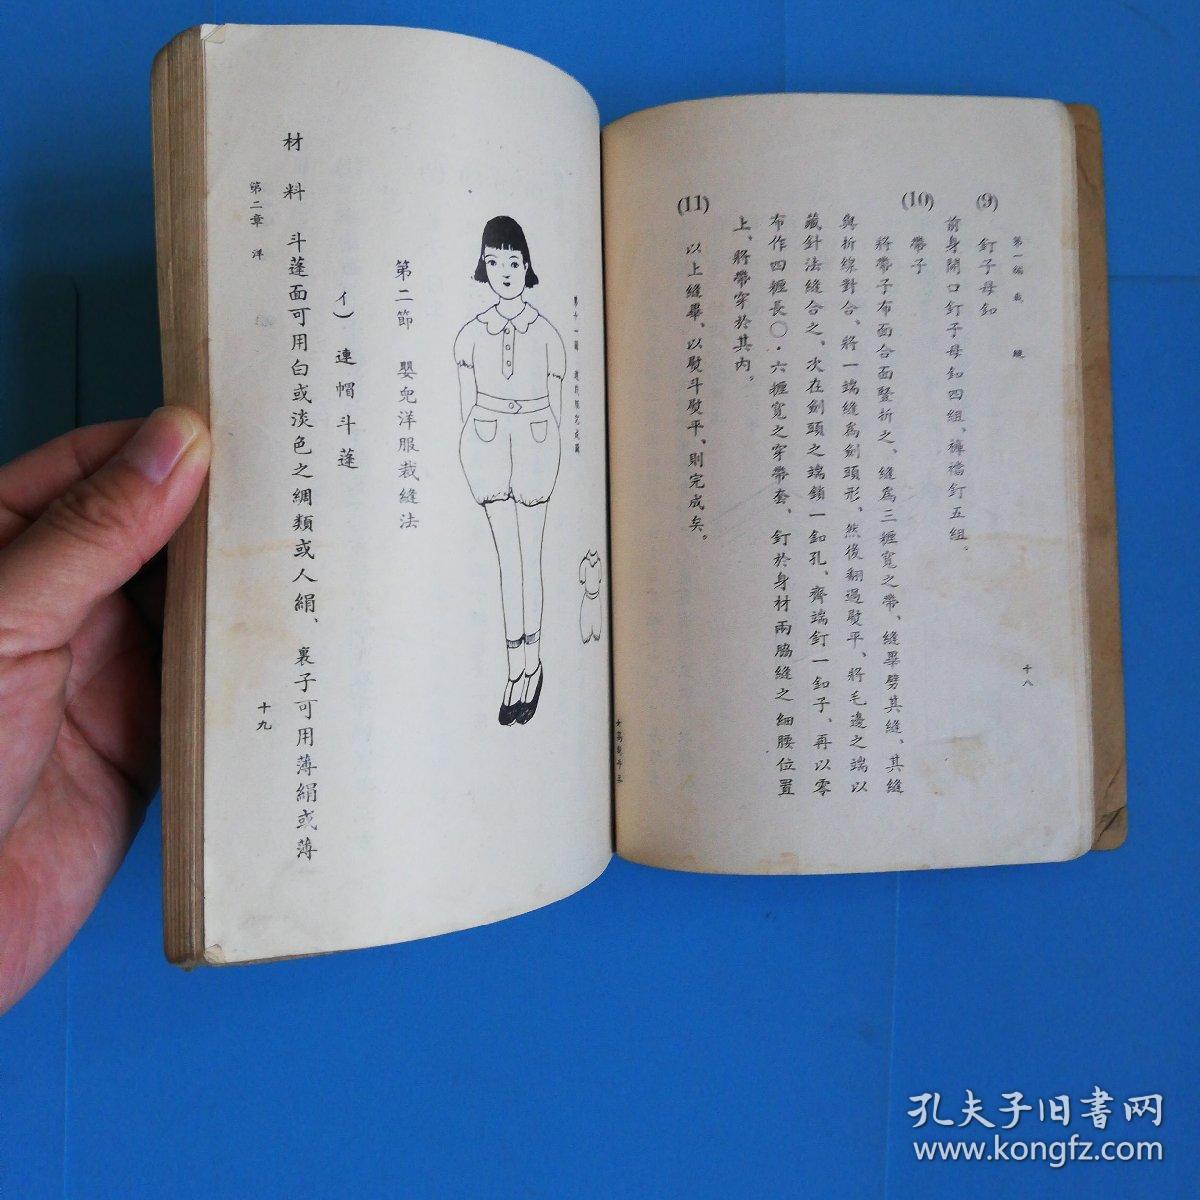 第一編 裁縫
十八
(9) 釘子母釦
前身開口釘子母釦四組、褲襠釘五組。
(10) 帶子
將帶子布面合面豎折之、縫爲三糎寬之帶、縫畢劈其縫、其縫
與折線對合、將一端縫爲劍頭形、然後翻過熨平、將毛邊之端以
藏針法縫合之、次在劍頭之端鎖一釦孔、齊端釘一釦子、再以零
布作四糎長〇・六糎寬之穿帶套、釘於身材兩脇縫之細腰位置
上、將帶穿於其內。
(11) 以上縫畢、以熨斗熨平、則完成矣。
第十一圖
完成圖
第二節 嬰兒洋服裁縫法
イ) 連帽斗蓬
材料 斗蓬面可用白或淡色之綢類或人絹、裏子可用薄絹或薄
第二章 洋
十九
孔夫子旧书网
www.kongfz.com